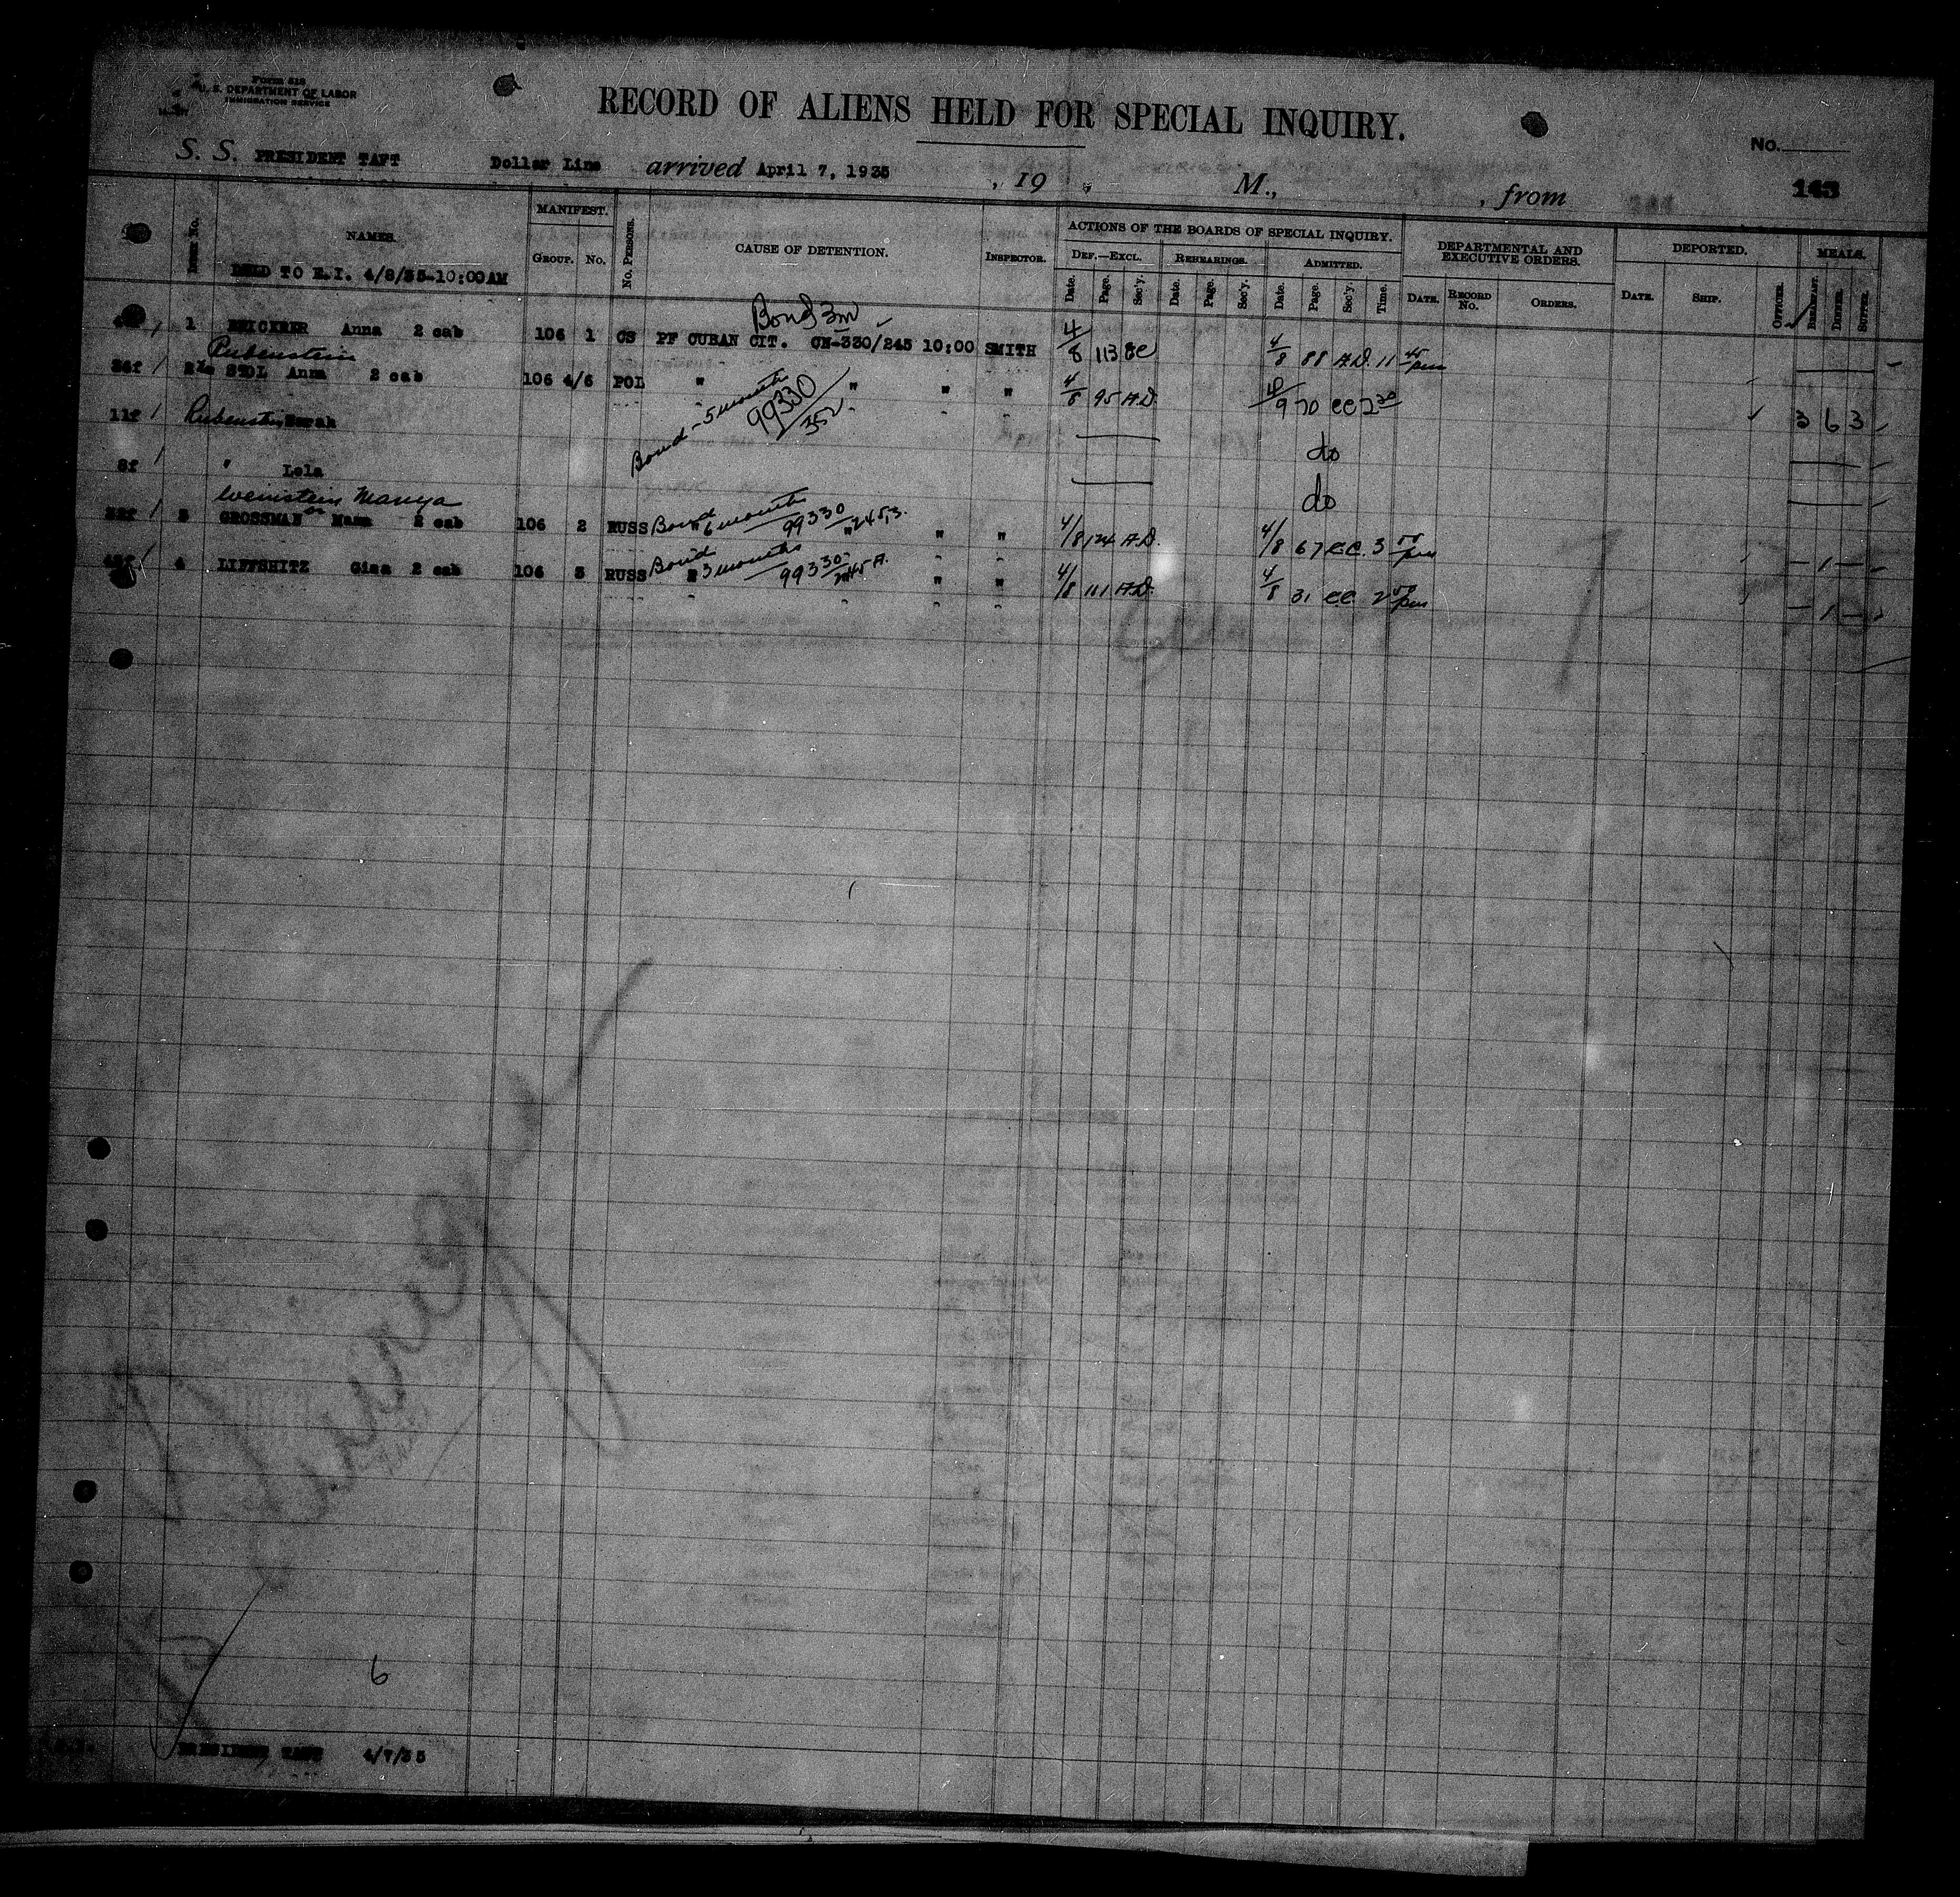 Form 518
U. S. DEPARTMENT OF LABOR
IMMIGRATION SERVICE
RECORD OF ALIENS HELD FOR SPECIAL INQUIRY.
No.
S. S. PRESIDENT TAFT Dollar Line arrived April 7, 1935 , 19 , M., , from 143
NAMES
HELD TO E.I. 4/8/35-10:00AM
MANIFEST.
GROUP. No.
No. PERSONS.
CAUSE OF DETENTION.
INSPECTOR.
ACTIONS OF THE BOARDS OF SPECIAL INQUIRY.
DEF.—EXCL. REHEARINGS. ADMITTED.
Date. Page. Sec'y. Date. Page. Sec'y. Date. Page. Sec'y. Time.
DEPARTMENTAL AND
EXECUTIVE ORDERS.
DATE. RECORD No. ORDERS.
DEPORTED.
DATE. SHIP. OFFICER.
MEALS.
BREAKFAST. DINNER. SUPPER.
Bond 3m
1 Anna 2 cab 106 1 CS PF CUBAN CIT. CN-330/245 10:00 SMITH 4/8 113 EC 4/8 88 A.D. 11 45 pm
Rubenstein
STOL Anna 2 cab 106 4/6 POL " " " " 4/8 95 A.D. 4/9 70 EC 2 30
Bond - 5 months 99330/352
11f Rubenstein Sarah do 3 6 3
8f " Lola do
Weinstein Manya
or
3 GROSSMAN 2 cab 106 2 RUSS Bond 6 months 99330/245,3. " " 4/8 124 A.D. 4/8 67 E.C. 3 pm
4 LIFFSHITZ Gisa 2 cab 106 5 RUSS Bond 3 months 99330/245 A. " " 4/8 111 A.D. 4/8 31 EC 2 pm
6
PRESIDENT TAFT 4/7/35